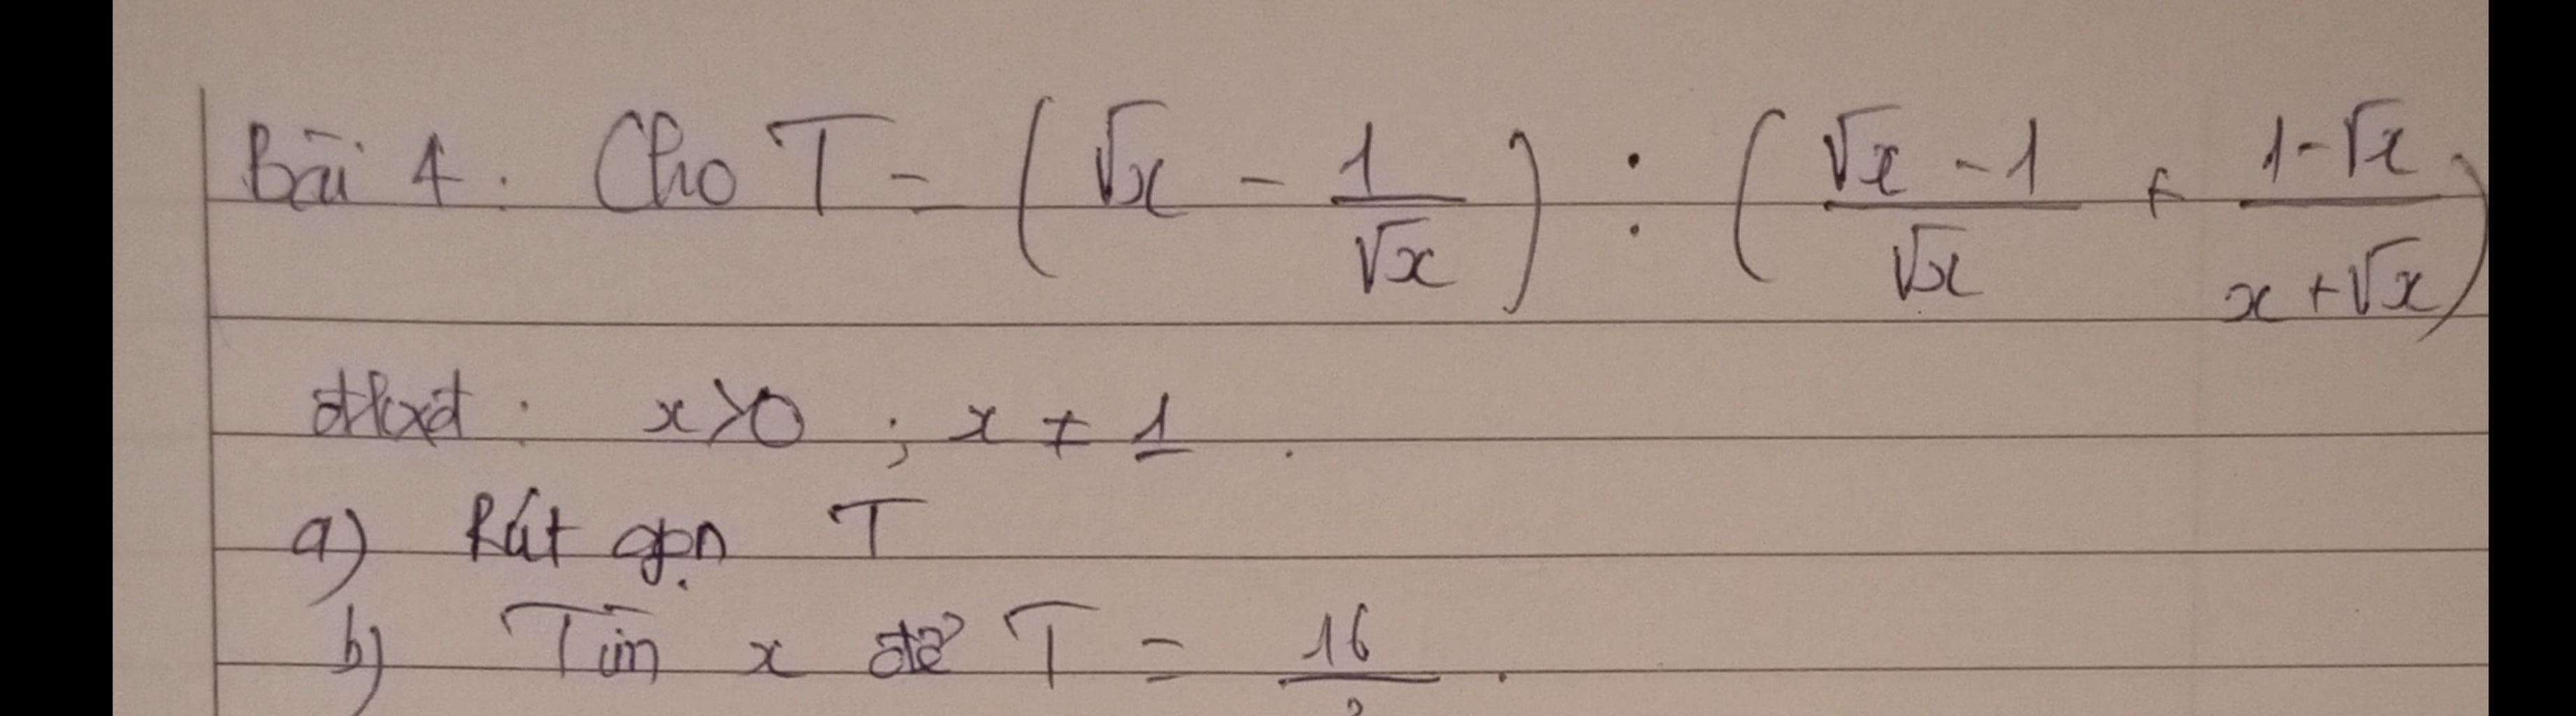 Bài 4: Cho T = (√x - 1/√x) : ((√x - 1)/√x + (1 - √x)/(x + √x))
đkxđ: x > 0 ; x ≠ 1.
a) Rút gọn T
b) Tìm x để T = 16/